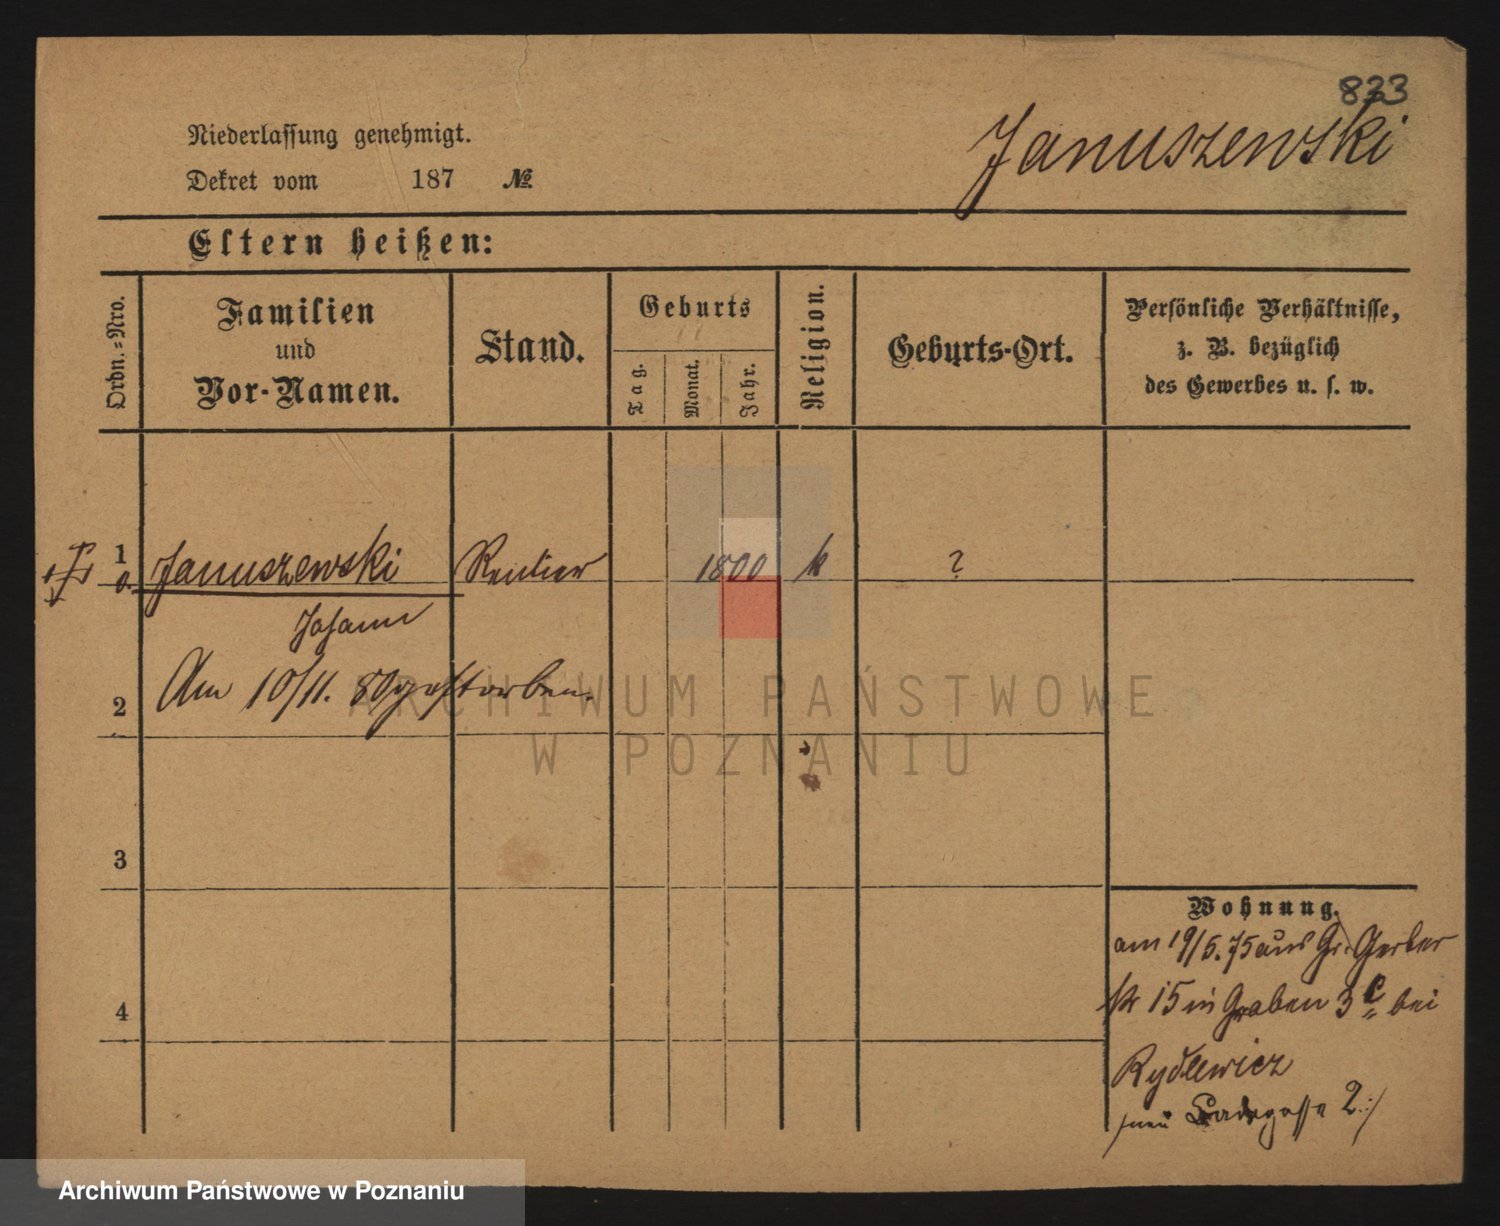 833
Januszewski
Niederlassung genehmigt.
Dekret vom 187 №
Eltern heißen:
Ordn.-Nro.
Familien
und
Vor-Namen.
Stand.
Geburts
Tag.
Monat.
Jahr.
Religion.
Geburts-Ort.
Persönliche Verhältnisse,
z. B. bezüglich
des Gewerbes u. s. w.
1 Januszewski Rentier 1800 k ?
Johann
2 Am 10/11. 80 gestorben.
3
4
Wohnung.
am 19/5. 75 aus Gr. Gerber
str 15 in Graben 3 c bei
Rydlewicz
neu Badegasse 2.
ARCHIWUM PAŃSTWOWE
W POZNANIU
Archiwum Państwowe w Poznaniu